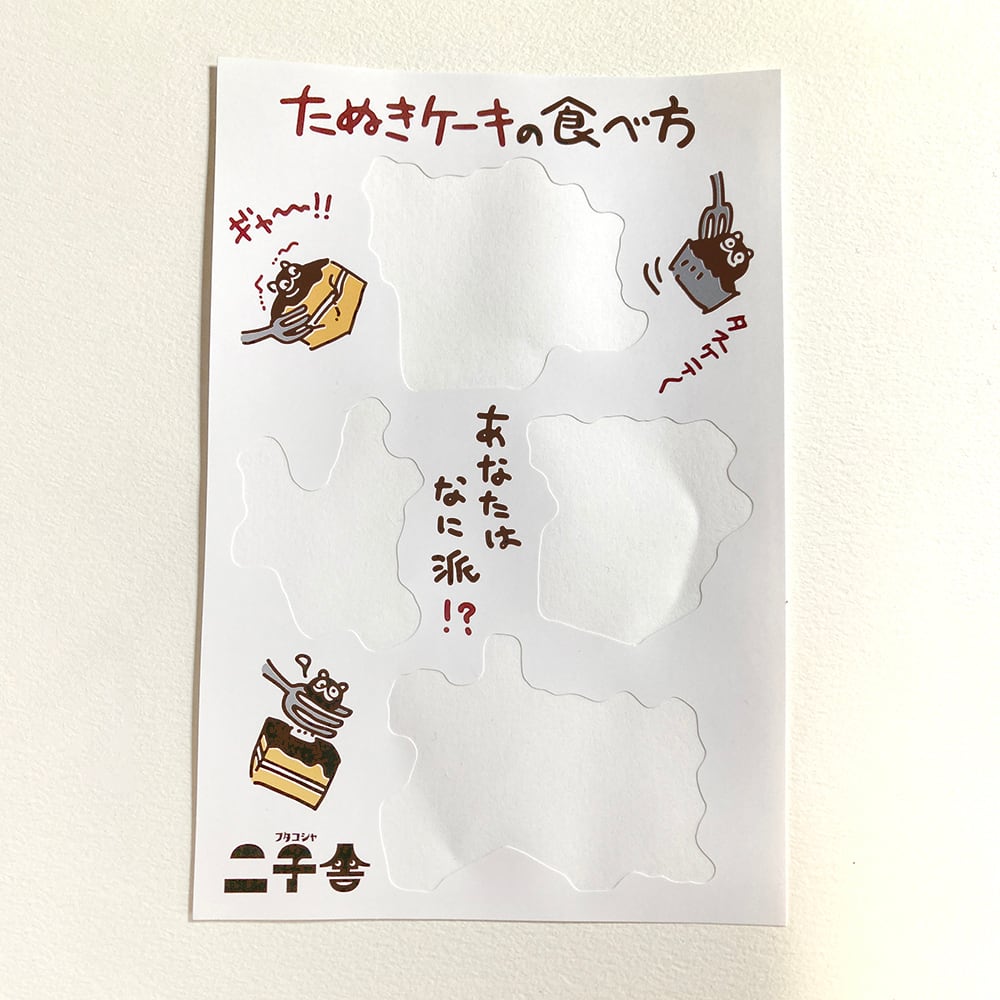 たぬきケーキの食べ方
ギャ〜〜!!
タスケテ〜
あなたは
なに派!?
フタコシャ
二子舎